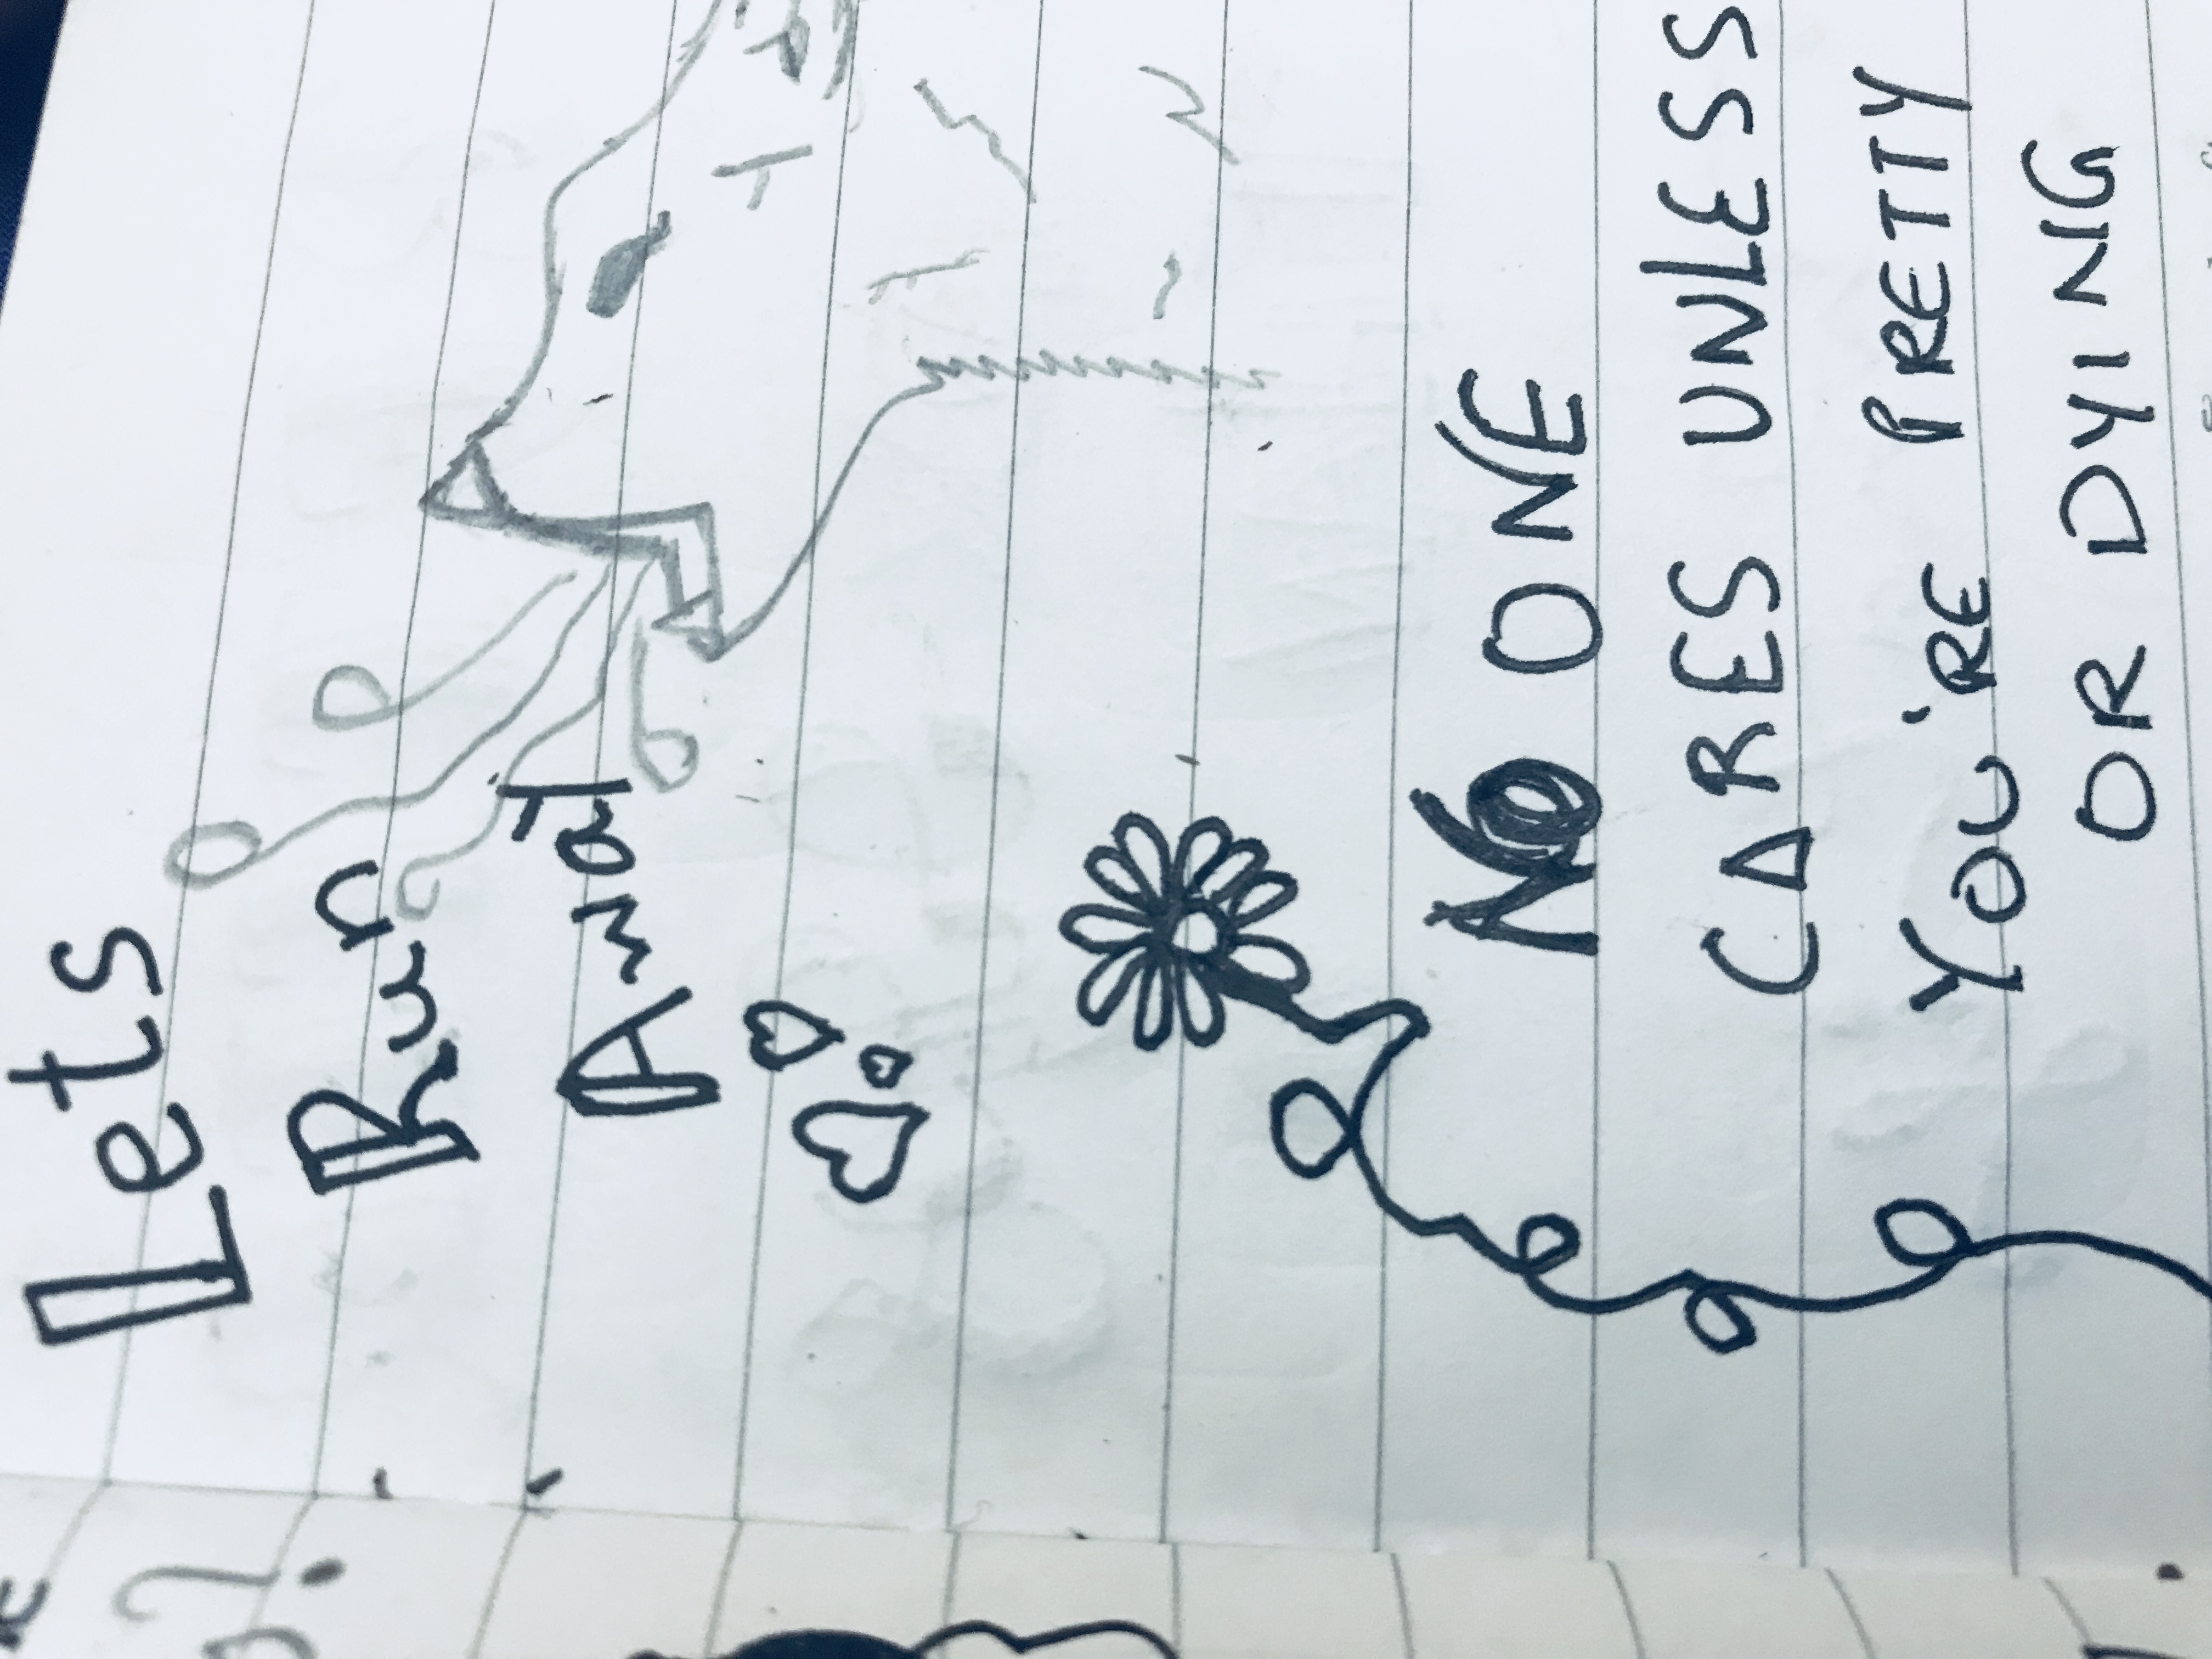 Lets
Run
Away
NO ONE
CARES UNLESS
YOU'RE PRETTY
OR DYING